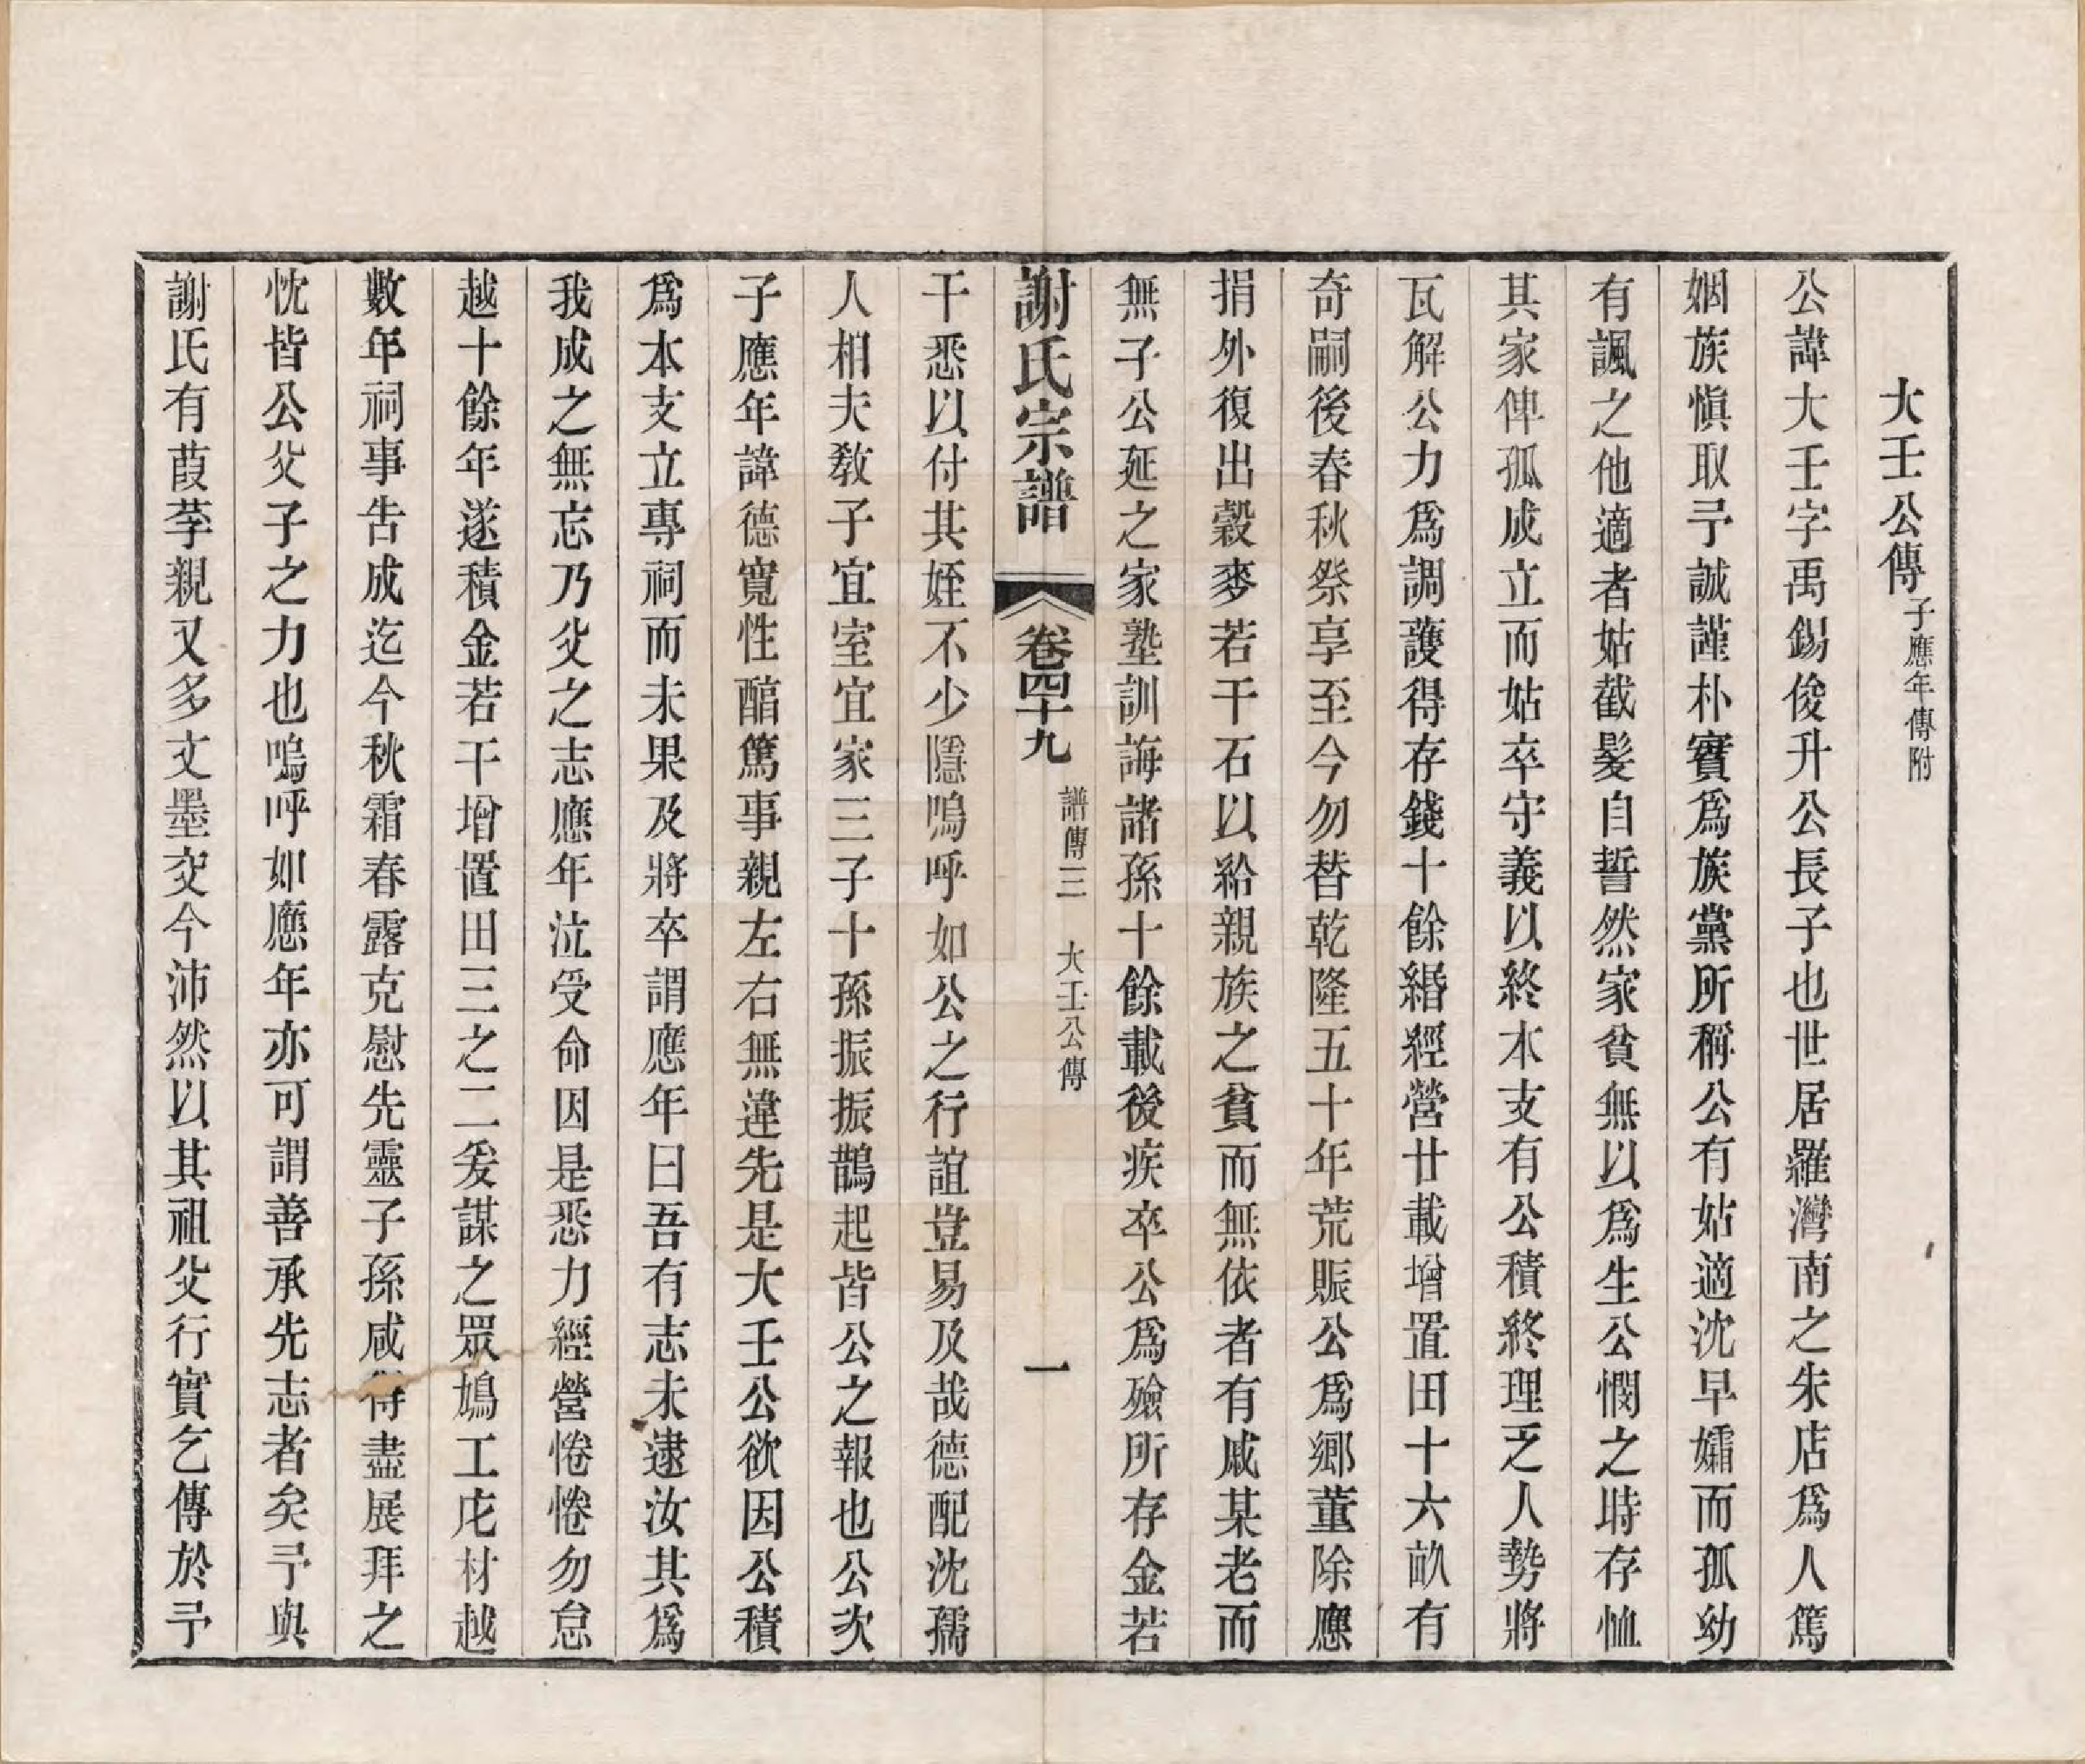 大壬公傳子應年傳附
公諱大壬字禹錫俊升公長子也世居羅灣南之朱店爲人篤
姻族愼取予誠謹朴實爲族黨所稱公有姑適沈早孀而孤幼
有諷之他適者姑截髮自誓然家貧無以爲生公憫之時存恤
其家俾孤成立而姑卒守義以終本支有公積終理乏人勢將
瓦解公力爲調護得存錢十餘緡經營廿載增置田十六畝有
奇嗣後春秋祭享至今勿替乾隆五十年荒賑公爲鄉董除應
捐外復出穀麥若干石以給親族之貧而無依者有戚某老而
無子公延之家塾訓誨諸孫十餘載後疾卒公爲殮所存金若
謝氏宗譜 卷四十九 譜傳三 大壬公傳 一
干悉以付其姪不少隱嗚呼如公之行誼豈易及哉德配沈孺
人相夫敎子宜室宜家三子十孫振振鵲起皆公之報也公次
子應年諱德寬性醕篤事親左右無違先是大壬公欲因公積
爲本支立專祠而未果及將卒謂應年曰吾有志未逮汝其爲
我成之無忘乃父之志應年泣受命因是悉力經營惓惓勿怠
越十餘年遂積金若干增置田三之二爰謀之眾鳩工庀材越
數年祠事告成迄今秋霜春露克慰先靈子孫咸得盡展拜之
忱皆公父子之力也嗚呼如應年亦可謂善承先志者矣予與
謝氏有葭莩親又多文墨交今沛然以其祖父行實乞傳於予